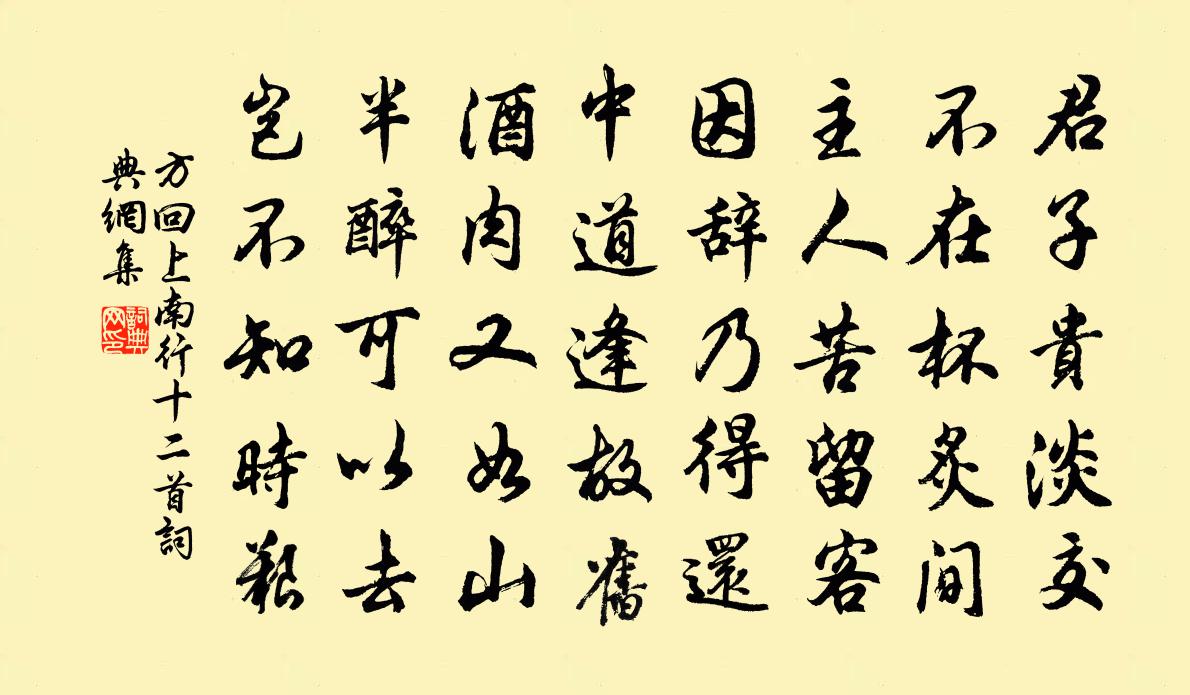 君子貴淡交
不在杯炙間
主人苦留客
因辞乃得還
中道逢故舊
酒肉又如山
半醉可以去
豈不知時艱
方回上南行十二首詞
典網集
詞典網印